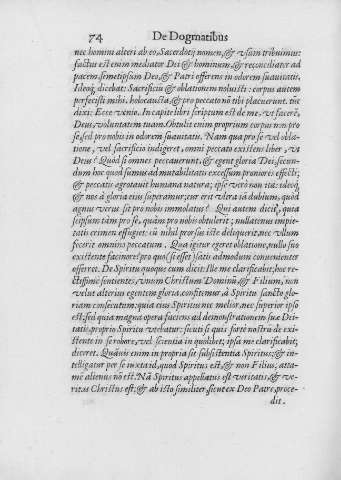 74 De Dogmatibus
nec homini alteri ab eo, Sacerdotij nomen, & vsum tribuimus:
factus est enim mediator Dei & hominum, & reconciliator ad
pacem, semetipsum Deo, & Patri offerens in odorem suauitatis.
Ideoq; dicebat: Sacrificiũ & oblationem noluisti: corpus autem
perfecisti mihi, holocausta, & pro peccato nõ tibi placuerunt. tũc
dixi: Ecce venio. In capite libri scriptum est de me, vt facerẽ,
Deus, voluntatem tuam. Obtulit enim proprium corpus non pro
se, sed pro nobis in odorem suauitatis. Nam qua pro se vel obla
tione, vel sacrificio indigeret, omni peccato existens liber, vt
Deus? Quòd si omnes peccauerunt, & egent gloria Dei, secun-
dum hoc quòd sumus ad mutabilitatis excessum proniores effecti;
& peccatis ægrotauit humana natura; ipse verò non ita: ideoq́;
& nos à gloria eius superamur; cur erit vlterius dubium, quòd
agnus verus sit pro nobis immolatus? Qui autem dicit, quia
seipsum tàm pro se, quàm pro nobis obtulerit; nullatenus impie-
tatis crimen effugiet: cũ nihil prorsus iste deliquerit, nec vllum
fecerit omnino peccatum. Qua igitur egeret oblatione, nullo suo
existente facinore? pro quo (si esset) satis admodum conuenienter
offerret. De Spiritu quoque cum dicit: Ille me clarificabit; hoc re-
ctissimè sentientes, vnum Christum Dominũ, & Filium, non
velut alterius egentem gloria, confitemur, à Spiritu sancto glo-
riam consecutum, quia eius Spiritus nec melior, nec superior ipso
est; sed quia magna opera faciens ad demonstrationem suæ Dei-
tatis, proprio Spiritu vtebatur: sicuti si quis fortè nostrũ de exi-
stente in se robore, vel scientia in quolibet; ipsa me clarificabit;
diceret. Quãuis enim in propria sit subsistentia Spiritus; & in-
telligatur per se iuxta id, quòd Spiritus est, & non Filius, atta-
mẽ alienus nõ est. Nã Spiritus appellatus est veritatis, & ve-
ritas Christus est; & ab isto similiter, sicut ex Deo Patre, proce-
dit.